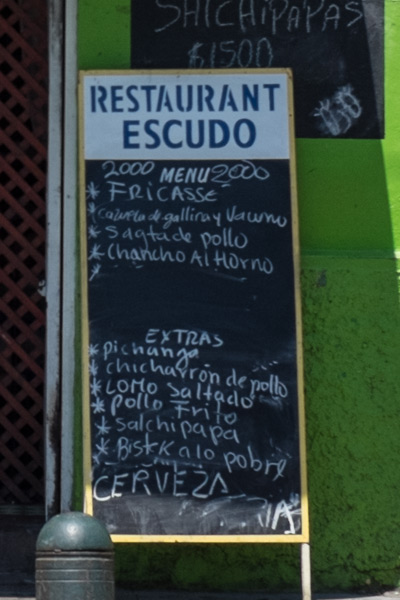 SALCHIPAPAS
$1500
RESTAURANT
ESCUDO
2000 MENU 2000
* FRICASSE
* Cazuela de gallina y Vacuno
* Sagta de pollo
* Chancho Al Horno
EXTRAS
* pichanga
* chicharrón de pollo
* LOMO Saltado
* pollo Frito
* salchipapa
* BisteK a lo pobre
CERVEZA